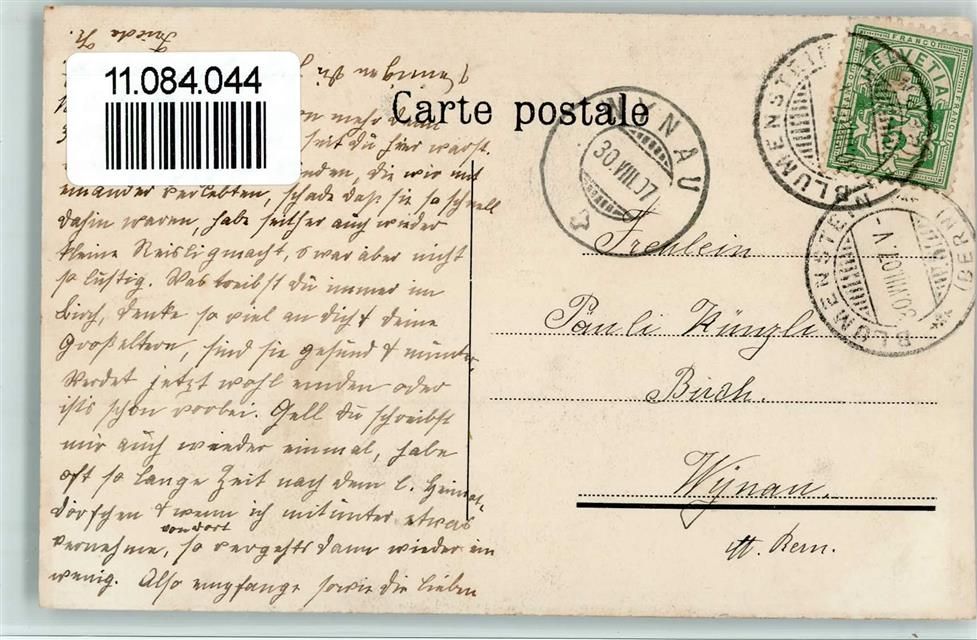 11.084.044
Carte postale
FRANCO
HELVETIA
FRANCO
BLUMENSTEIN
WYNAU
30.VIII.07
BLUMENSTEIN (BERN)
30.VIII.07. V
mehr
seit du hier warst.
die wir mit
einander verlebten, schade daß sie so schnell
dahin waren, habe seither auch wieder
kleine Reisli gmacht, s'war aber nicht
so lustig. Was treibst du immer im
Birch, denke so viel an dich & deine
Großeltern, sind sie gesund & munter.
Werdet jetzt wohl emden oder
ists schon vorbei. Gell du schreibst
mir auch wieder einmal, habe
oft so lange Zeit nach dem l. Heimat-
dörfchen & wenn ich mitunter etwas
von dort
vernehme, so vergehts dann wieder ein
wenig. Also empfange sowie die lieben
Frieda
Freulein
Pauli Künzli
Birch.
Wynau.
Kt. Bern.